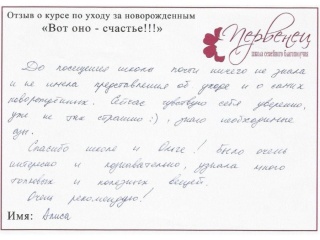 Отзыв о курсе по уходу за новорожденным
«Вот оно - счастье!!!»
Первенец
До посещения школы почти ничего не знала
и не имела представления об уходе и о самих
новорождённых. Сейчас чувствую себя уверенно,
уже не так страшно :), знаю необходимые
Спасибо школе и Ольге! Было очень
интересно и познавательно, узнала много
толковых и полезных вещей.
Очень рекомендую!
Имя: Алиса